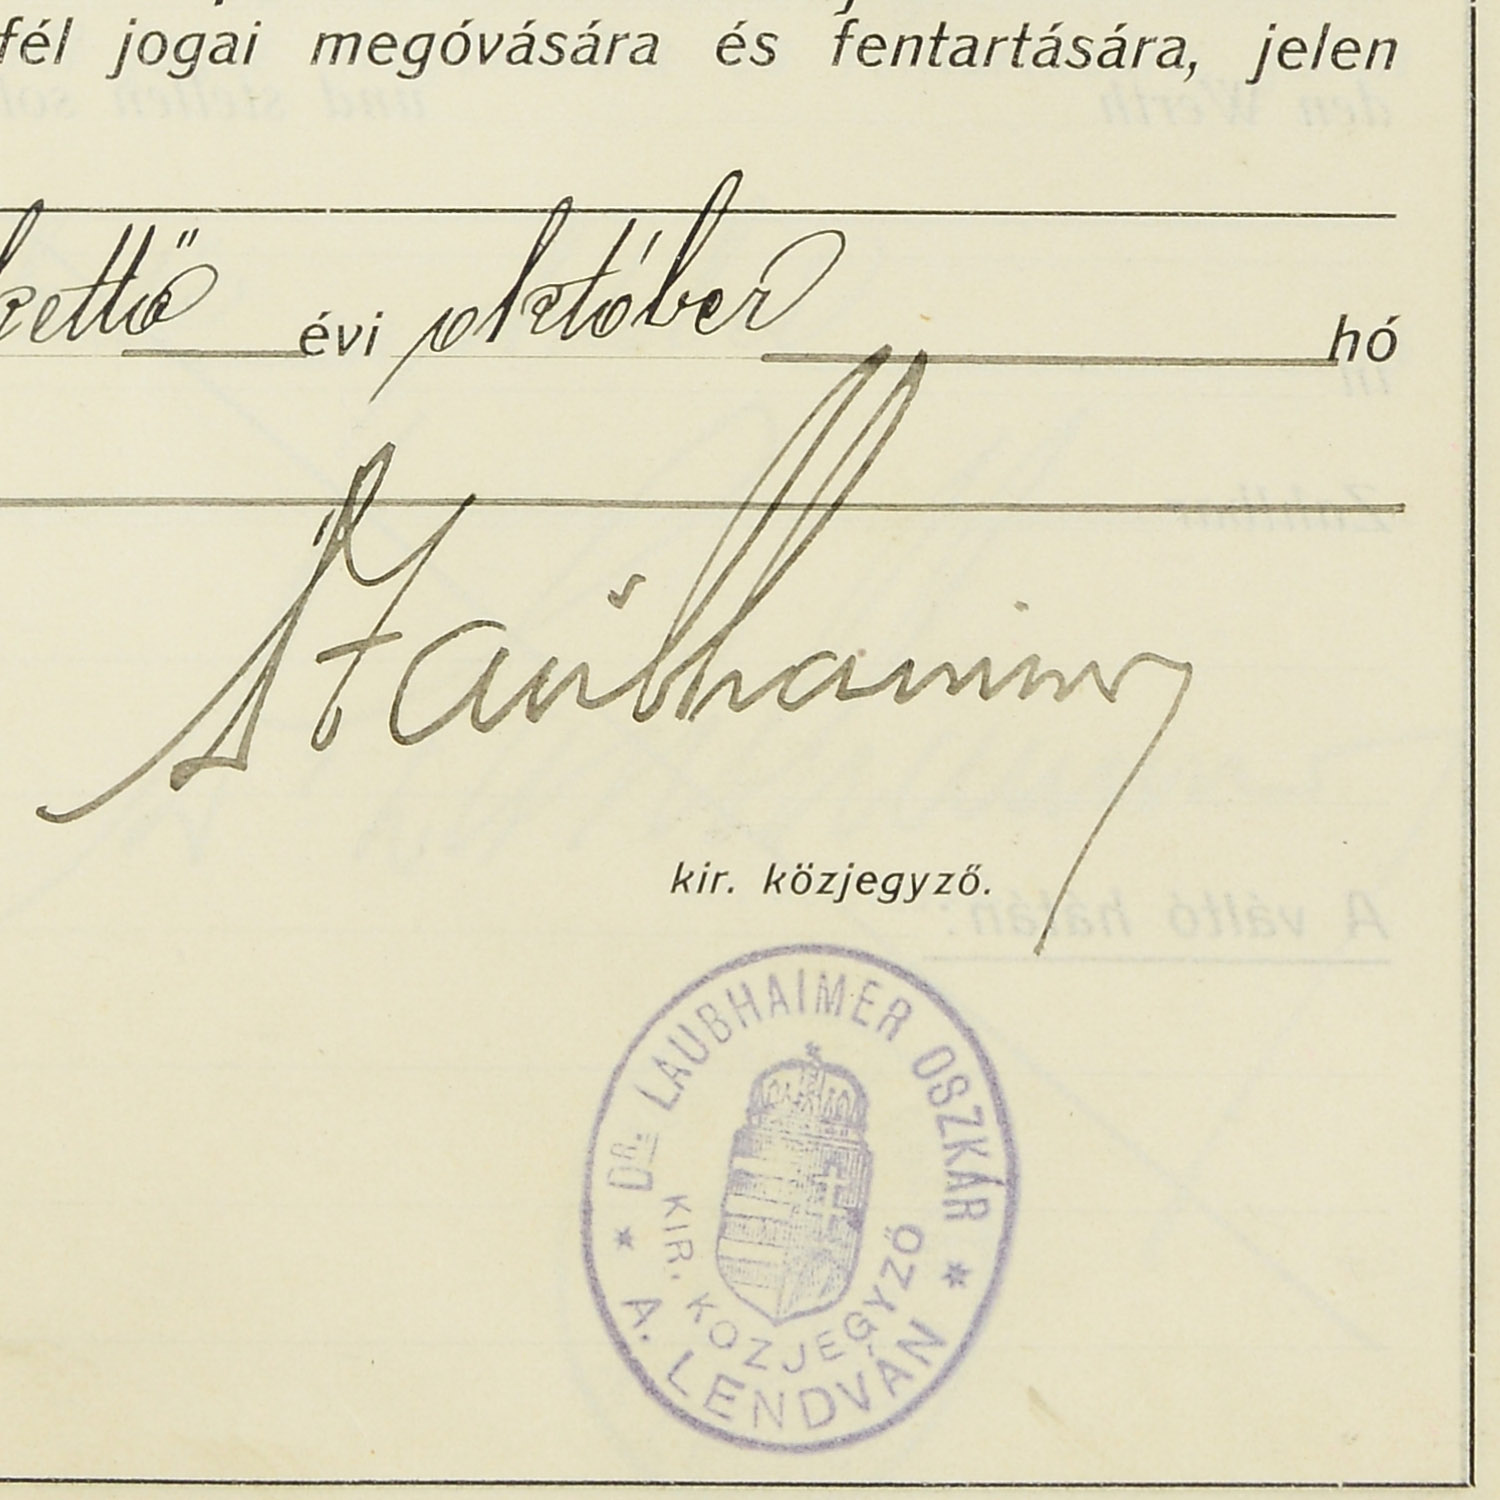 fél jogai megóvására és fentartására, jelen
kettő évi október hó
kir. közjegyző.
DR. LAUBHAIMER OSZKÁR
KIR. KÖZJEGYZŐ
* A. LENDVÁN *